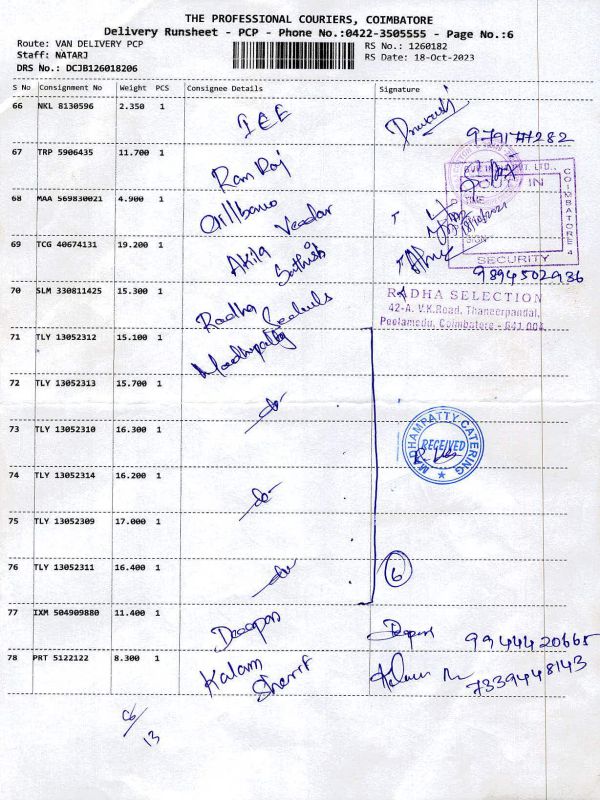 THE PROFESSIONAL COURIERS, COIMBATORE
Delivery Runsheet - PCP - Phone No.:0422-3505555 - Page No.:6
Route: VAN DELIVERY PCP RS No.: 1260182
Staff: NATARJ RS Date: 18-Oct-2023
DRS No.: DCJB126018206
S No Consignment No Weight PCS Consignee Details Signature
66 NKL 8130596 2.350 1 IEE
67 TRP 5906435 11.700 1 Ram Raj
68 MAA 569830021 4.900 1
69 TCG 40674131 19.200 1 Akila Sathish 9894502936
70 SLM 330811425 15.300 1 Radha
RADHA SELECTION
42-A. V.K.Road, Thaneerpandal,
Peelamedu, Coimbatore - 641 004
71 TLY 13052312 15.100 1 Madhupatty
72 TLY 13052313 15.700 1 -do-
73 TLY 13052310 16.300 1
MADHAMPATTY CATERING
RECEIVED
74 TLY 13052314 16.200 1 -do-
75 TLY 13052309 17.000 1
76 TLY 13052311 16.400 1 -do- 6
77 IXM 504909880 11.400 1 Deepan 9944420665
78 PRT 5122122 8.300 1 Kalam Sherif 7339448143
OUT / IN
TIME
SIGN
SECURITY
COIMBATORE 4
13